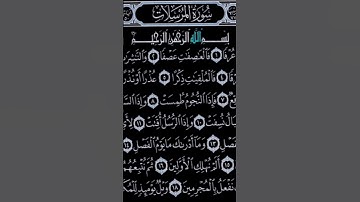 سُورَةُ المُرْسَلَات
بِسْمِ اللَّهِ الرَّحْمَٰنِ الرَّحِيمِ
عُرْفًا ١ فَالْعَٰصِفَٰتِ عَصْفًا ٢ وَالنَّٰشِرَ
فَرْقًا ٤ فَالْمُلْقِيَٰتِ ذِكْرًا ٥ عُذْرًا أَوْ
٧ فَإِذَا النُّجُومُ طُمِسَتْ ٨ وَإِذَا السَّ
نُسِفَتْ ١٠ وَإِذَا الرُّسُلُ أُقِّتَتْ ١١ لِأَيِّ
١٣ وَمَا أَدْرَىٰكَ مَا يَوْمُ الْفَصْلِ ١٤
١٥ أَلَمْ نُهْلِكِ الْأَوَّلِينَ ١٦ ثُمَّ نُتْبِعُهُمُ
نَفْعَلُ بِالْمُجْرِمِينَ ١٨ وَيْلٌ يَوْمَئِذٍ لِّلْمُكَ